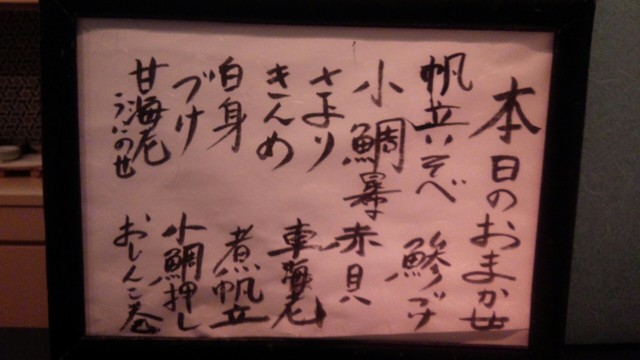 本日のおまかせ
帆立いそべ
鯵づけ
小鯛昆布
赤貝
さより
車海老
きんめ
煮帆立
白身
小鯛押し
づけ
おしんこ巻
甘海老
うにのせ